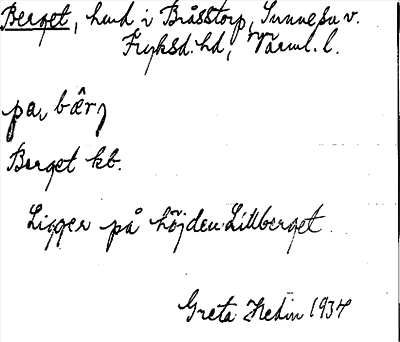 Berget, hmd i Bråsstorp, Sunnesu v.
Fryksd. hd, Värml. l.
pa, bær̂j
Berget kb.
Ligger på höjden Lillberget
Greta Hedin 1937